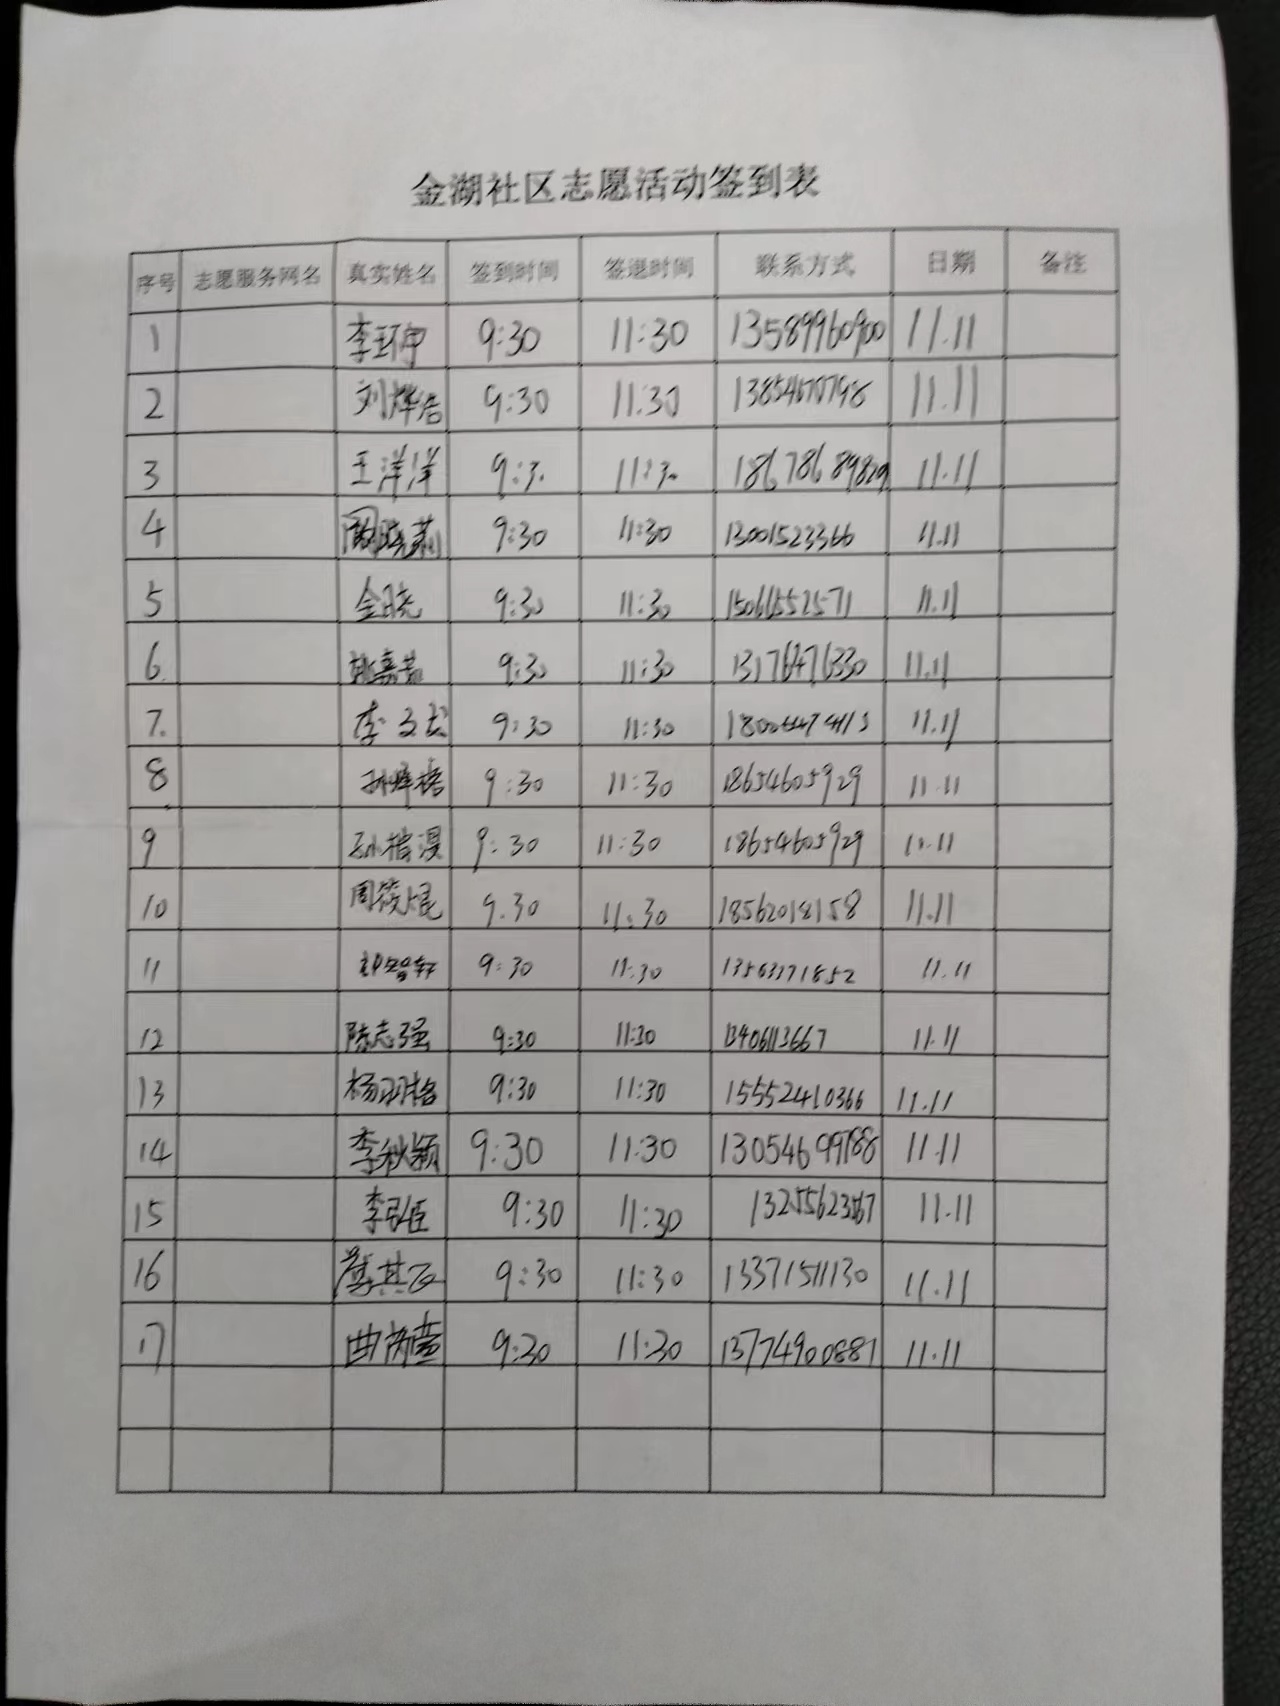 金湖社区志愿活动签到表
序号 志愿服务网名 真实姓名 签到时间 签退时间 联系方式 日期 备注
1 李环甲 9:30 11:30 13589960900 11.11
2 刘烨浩 9:30 11:30 11.11
3 王洋洋 9:3. 11:3. 18678689829 11.11
4 9:30 11:30 13001523366 11.11
5 金晓 9:30 11:30 15066552571 11.11
6. 姚嘉茹 9:30 11:30 13176476330 11.11
7. 李文 9:30 11:30 11.11
8 孙烨格 9:30 11:30 18654605929 11.11
9 孙楷漫 9:30 11:30 18654605929 11.11
10 周筱焜 9.30 11:30 18562018158 11.11
11 9:30 11:30 13563771852 11.11
12 陈志强 9:30 11:30 13406113667 11.11
13 杨羽格 9:30 11:30 15552410366 11.11
14 李秋颖 9:30 11:30 13054699788 11.11
15 李弘臣 9:30 11:30 11.11
16 9:30 11:30 13371511130 11.11
17 曲 9:30 11:30 13774900881 11.11